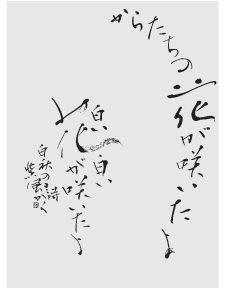 からたちの花が咲いたよ
白い白い
花が咲いたよ
白秋の詩